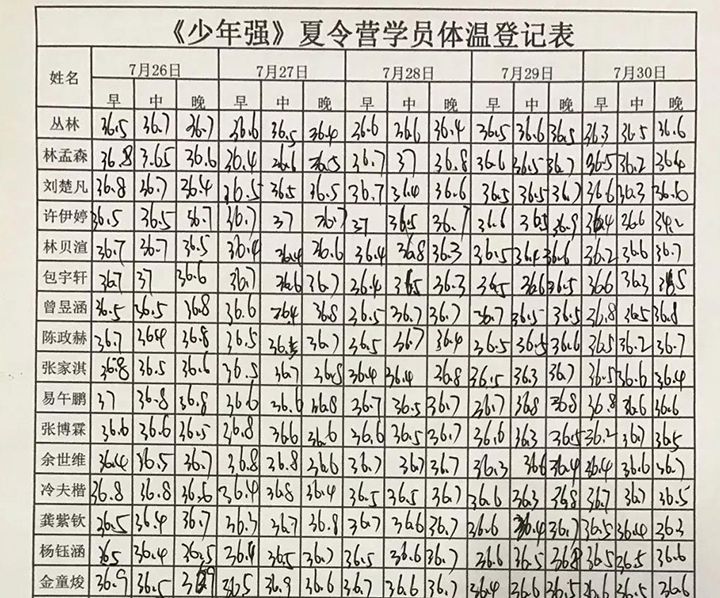 《少年强》夏令营学员体温登记表
姓名 7月26日 7月27日 7月28日 7月29日 7月30日
早 中 晚 早 中 晚 早 中 晚 早 中 晚 早 中 晚
丛林 36.5 36.7 36.7 36.6 36.5 36.4 36.6 36.6 36.4 36.5 36.6 36.5 36.3 36.5 36.6
林孟森 36.8 3.65 36.6 36.4 36.6 36.5 36.7 37 36.8 36.6 36.5 36.7 36.5 36.2 36.4
刘楚凡 36.8 36.7 36.4 36.5 36.5 36.5 36.7 36.4 36.6 36.5 36.5 36.7 36.6 36.3 36.6
许伊婷 36.5 36.5 36.7 36.7 37 36.7 37 36.5 36.7 36.6 36.5 36.8 36.4 36.6
林贝渲 36.7 36.7 36.5 36.4 36.4 36.6 36.4 36.8 36.3 36.5 36.4 36.6 36.2 36.6 36.7
包宇轩 36.7 37 36.6 36.7 36.6 36.7 36.4 36.5 36.3 36.5 36.6 36.5 36.6 36.3
曾昱涵 36.5 36.5 36.8 36.6 36.4 36.8 36.5 36.7 36.7 36.7 36.5 36.5 36.8 36.5 36.8
陈政赫 36.7 364 36.8 36.5 36.7 36.5 36.7 36.4 36.5 36.5 36.6 36.5 36.2 36.7
张家淇 36.8 36.5 36.6 36.5 36.7 36.8 36.4 36.4 36.8 36.5 36.3 36.7 36.5 36.6 36.4
易午鹏 37 36.8 36.8 36.6 36.6 36.8 36.7 36.5 36.7 36.7 36.8 36.8 36.8 36.6 36.6
张博霖 36.6 36.6 36.5 36.8 36.6 36.6 36.6 36.5 36.7 36.6 36.3 36.5 36.2 36.7 36.5
余世维 36.4 36.5 36.7 36.8 36.8 36.6 36.7 36.7 36.7 36.3 36.6 36.4 36.4 36.6 36.7
冷夫楷 36.8 36.8 36.6 36.4 36.8 36.4 36.5 36.5 36.7 36.6 36.3 36.8 36.7 36.7 36.5
龚紫钦 36.5 36.4 36.7 36.3 36.7 36.8 36.7 36.6 36.7 36.6 36.4 36.7 36.5 36.4 36.3
杨钰涵 36.5 36.4 36.5 36.4 36.5 36.7 36.5 36.6 36.7 36.6 36.5 36.8 36.5 36.5 36.6
金童焌 36.9 36.5 36.5 36.9 36.6 36.7 36.6 36.7 36.4 36.6 36.5 36.6 36.5 36.6